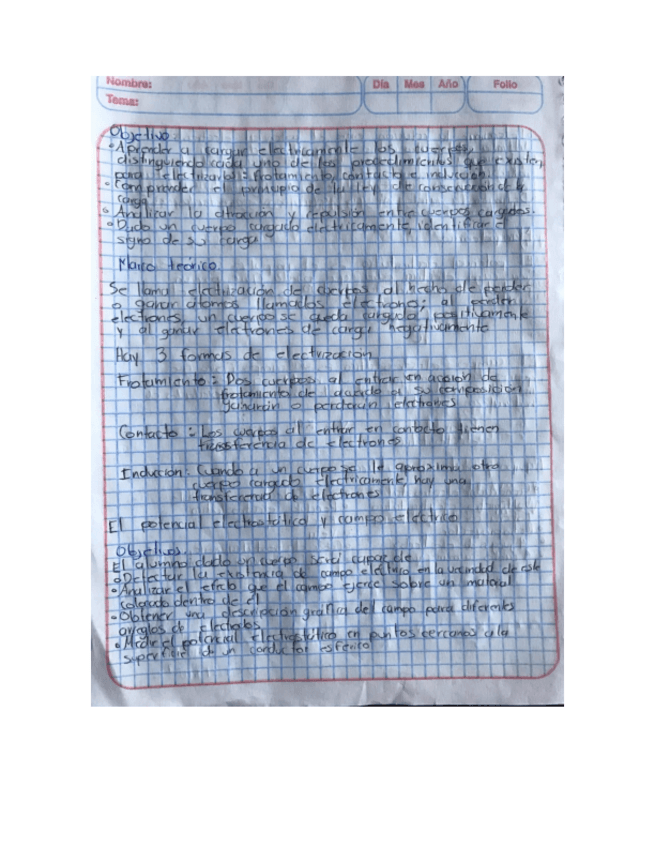 Nombre:
Día Mes Año Folio
Tema:
Objetivo:
• Aprender a cargar electricamente los cuerpos,
distinguiendo cada uno de los procedimientos que existen,
para electrizarlos: frotamiento, contacto e inducción.
• Comprender el principio de la ley de conservación de la
carga
• Analizar la atracción y repulsión entre cuerpos cargados.
• Dado un cuerpo cargado electricamente, identificar el
signo de su carga
Marco teórico.
Se llama electrización de cuerpos al hecho de perder
o ganar atomos llamados electrones; al perder
electrones un cuerpo se queda cargado positivamente
y al ganar elctrones de carga negativamente
Hay 3 formas de electrización
Frotamiento: Dos cuerpos al entrar en acción de
frotamiento de acuerdo a su composición
ganaran o perderan electrones
Contacto: Los cuerpos al entrar en contacto tienen
transferencia de electrones
Inducion: Cuando a un cuerpo se le aproxima otro
cuerpo cargado electricamente hay una
transferencia de electrones
El potencial electrostático y campo electrico
Objetivos.
El alumno dado un cuerpo será capaz de
• Detectar la existencia de campo eléctrico en la vecindad de este
• Analizar el efecto que el campo ejerce sobre un material
colocado dentro de él
• Obtener una descripción gráfica del campo para diferentes
arreglos de electrodos
• Medir el potencial electrostático en puntos cercanos a la
superficie de un conductor esférico